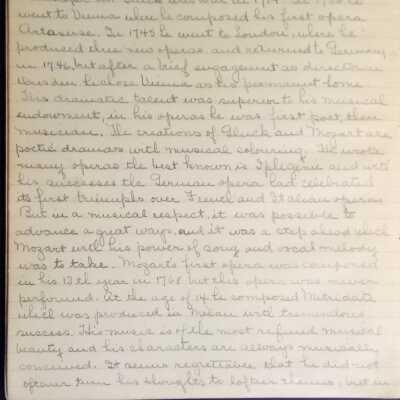 Gluck was born in 1714. In 1736 he
went to Vienna where he composed his first opera
Artaserse. In 1745 he went to London, where he
produced three new operas, and returned to Germany
in 1746, but after a brief engagement as director in
Dresden, he chose Vienna as his permanent home.
This dramatic talent was superior to his musical
endowment, in his operas he was first poet, then
musician. The creations of Gluck and Mozart are
poetic dramas with musical colouring. He wrote
many operas the best known is Iphigenie and with
his successes the German opera had celebrated
its first triumphs over French and Italian operas
But in a musical respect, it was possible to
advance a great ways, and it was a step ahead which
Mozart with his power of song and vocal melody
was to take. Mozart's first opera was composed
in his 13th year in 1768 but this opera was never
performed. At the age of 14 he composed Metridate
which was produced in Milan with tremendous
success. His music is of the most refined musical
beauty and his characters are always musically
conceived. It seems regretable that he did not
oftener turn his thoughts to loftier themes, but in